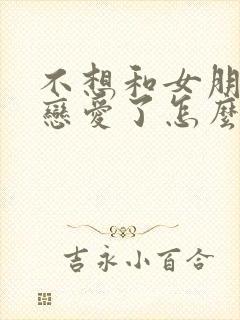 不想和女朋
戀愛了怎麼
吉永小百合